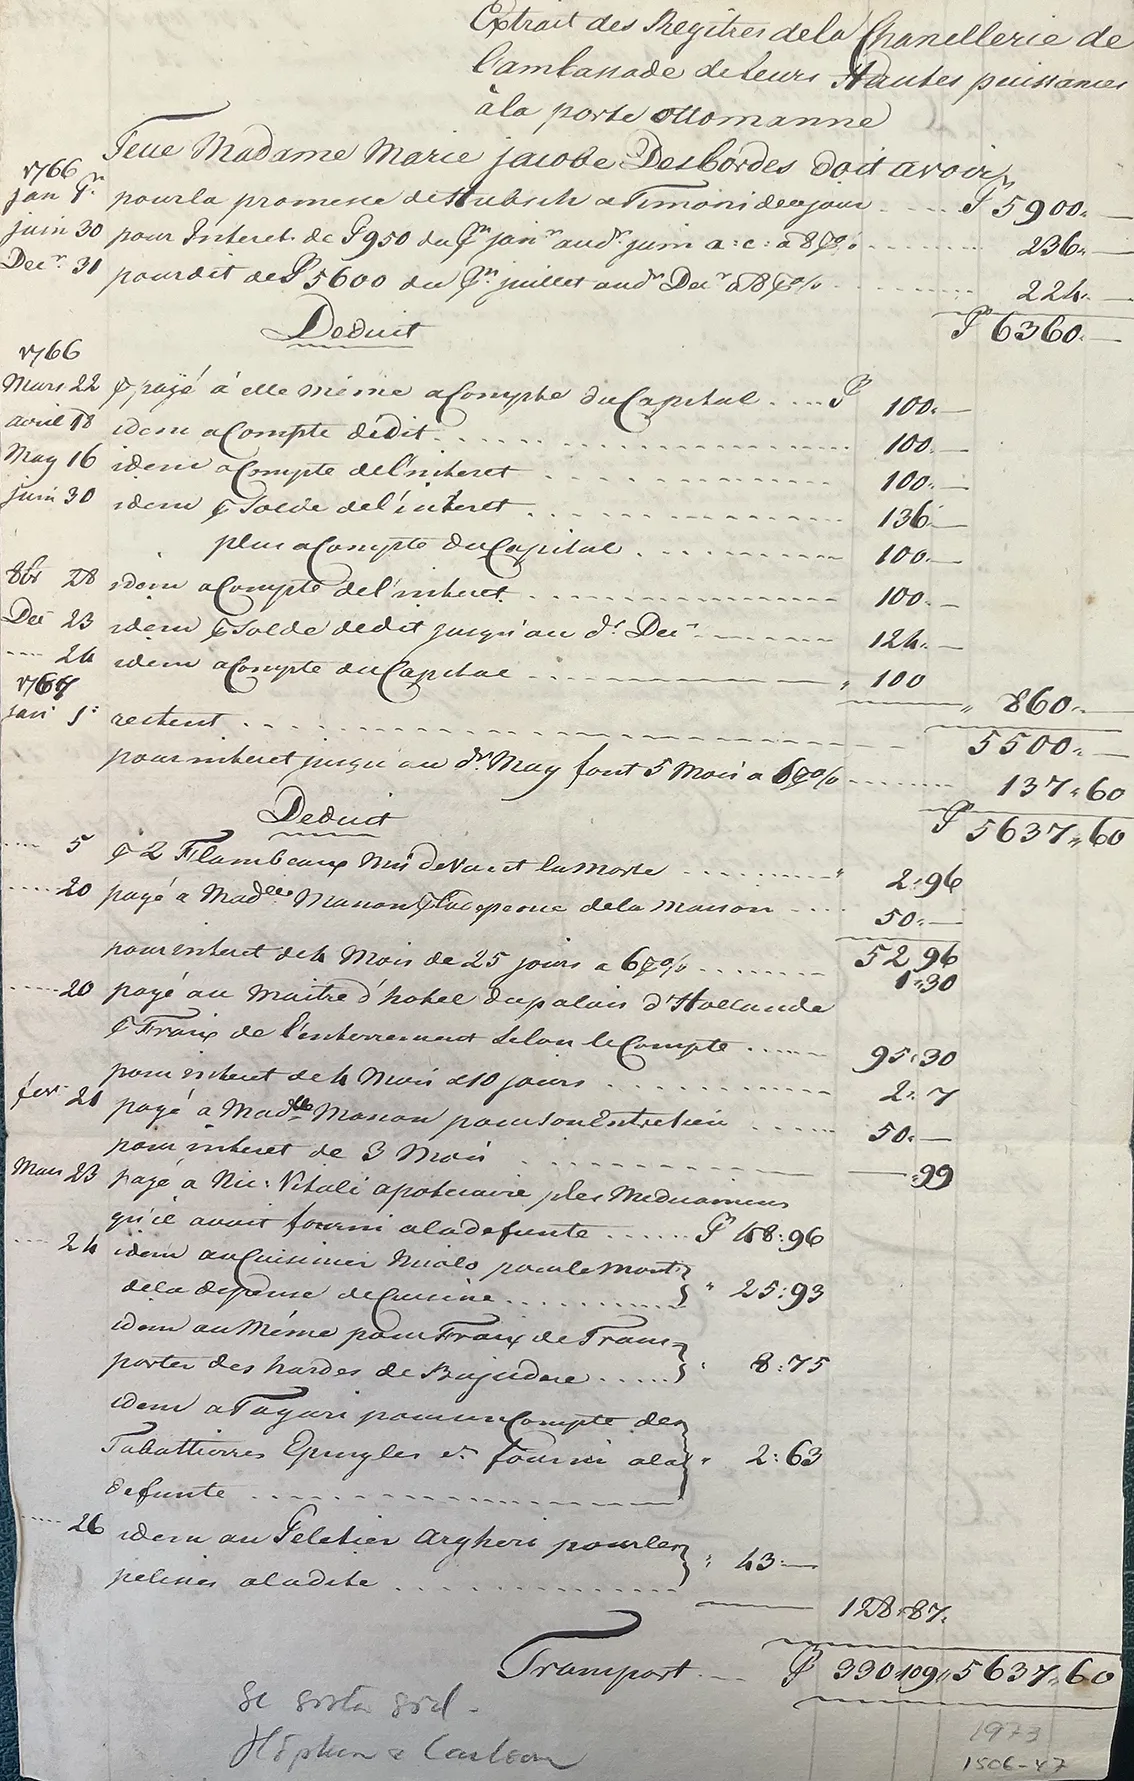 Extrait des Regîtres de la Chancellerie de
l'ambassade de leurs Hautes puissances
à la porte ottomanne
Feue Madame Marie jacobe DesBordes doit avoir
1766
jan 1r. pour la promesse de Hubsch a Timoni de ce jour ..... P 5900.—
juin 30 pour Interet de P 950 du 1er janr au dr juin a: c: a 8 p% ......... 236.—
Decr. 31 pour dit de P 5600 du 1er juillet au dr Decr a 8 p% ......... 224.—
P 6360.—
Deduit
1766
Mars 22 p payé à elle même a Compte du Capital .... P 100.—
avril 18 idem a Compte dédit ......... 100.—
May 16 idem a Compte de l'interet ......... 100.—
juin 30 idem p Solde de l'interet ......... 136.—
plus a Compte du Capital ......... 100.—
8br 28 idem a Compte de l'interet ......... 100.—
Dec 23 idem p Solde dedit jusqu'au dr Decr ......... 124.—
---- 24 idem a Compte du Capital ......... " 100
" 860.—
1767
jan 1r restent ......... 5500.—
pour interet jusqu'au dr May font 5 Mois a 6 p% ......... 137.60
P 5637.60
Deduit
---- 5 p 2 Flambeaux Mis devant la Morte ......... " 2.96
---- 20 payé a Madlle Manon p la depense de la maison .... 50.—
52.96
pour interet de 4 Mois de 25 jours a 6 p% ......... 1.30
---- 20 payé au Maitre d'hotel du palais d'Hollande
p Fraix de l'enterrement selon le Compte ..... 95.30
pour interet de 4 Mois a 10 jours ......... 2.7
fevr 21 payé a Madlle Manon pour son Entretien ..... 50.—
pour interet de 3 Mois ......... :99
Mars 23 payé a Nic: Vitali apoticaire p les Medicamens
qu'il avait fourni a la defunte ...... P 48:96
---- 24 idem au Cuisinier Nicolo pour le Mont
de la depense de Cuisine ......... " 25:93
idem au Même pour Fraix de Trans
porter des hardes de Bujudere ...... " 8:75
idem a Tagari pour un Compte des
Tabattieres Epingles &c fourni a la " 2:63
defunte .........
---- 26 idem au Peletier Argheri pour les
pelices a ladite ......... " 43:—
128.87.
Transport .... P 330.109.5637.60
1973
1506-47